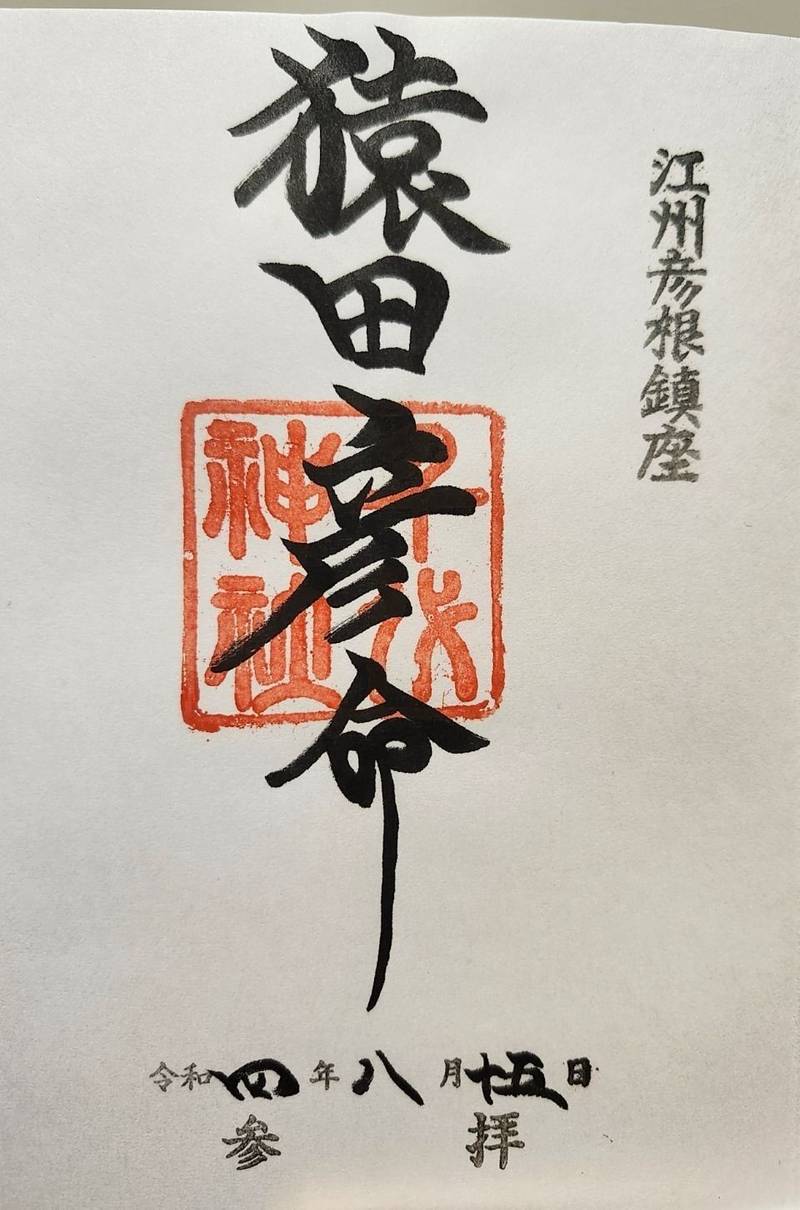 江州彦根鎮座
猿田彦命
千代
神社
令和四年八月十五日
参拝